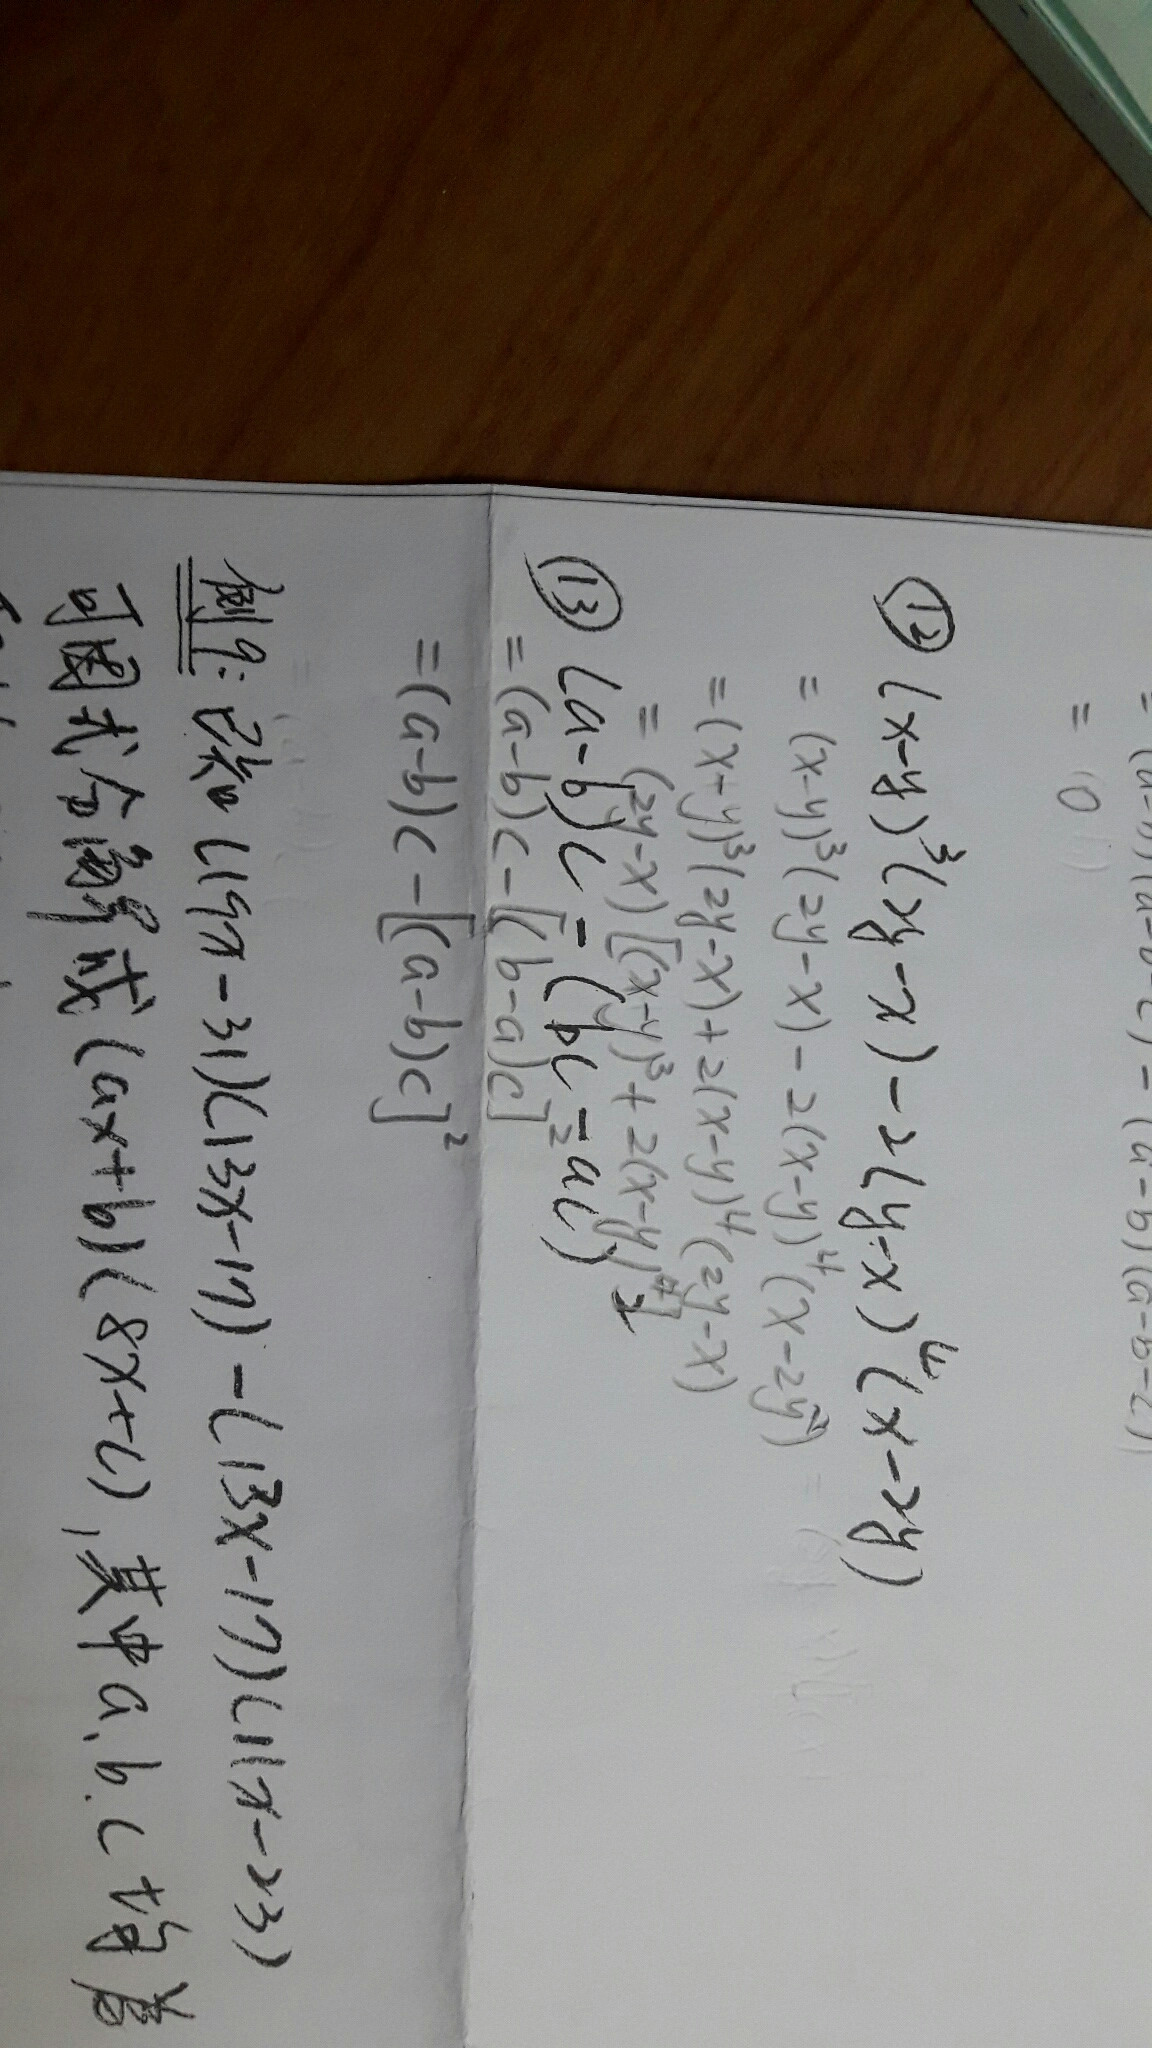 = 0
⑫ (x-y)³(2y-x)-2(y-x)⁴(x-2y)
= (x-y)³(2y-x)-2(x-y)⁴(x-2y)
=(x+y)³(2y-x)+2(x-y)⁴(2y-x)
= (2y-x)[(x-y)³+2(x-y)⁴]
⑬ (a-b)c-(bc-ac)²
=(a-b)c-[(b-a)c]²
=(a-b)c-[(a-b)c]²
例9:已知(19x-31)(13x-17)-(13x-17)(11x-23)
可因式分解成(ax+b)(8x+c),其中a、b、c均为